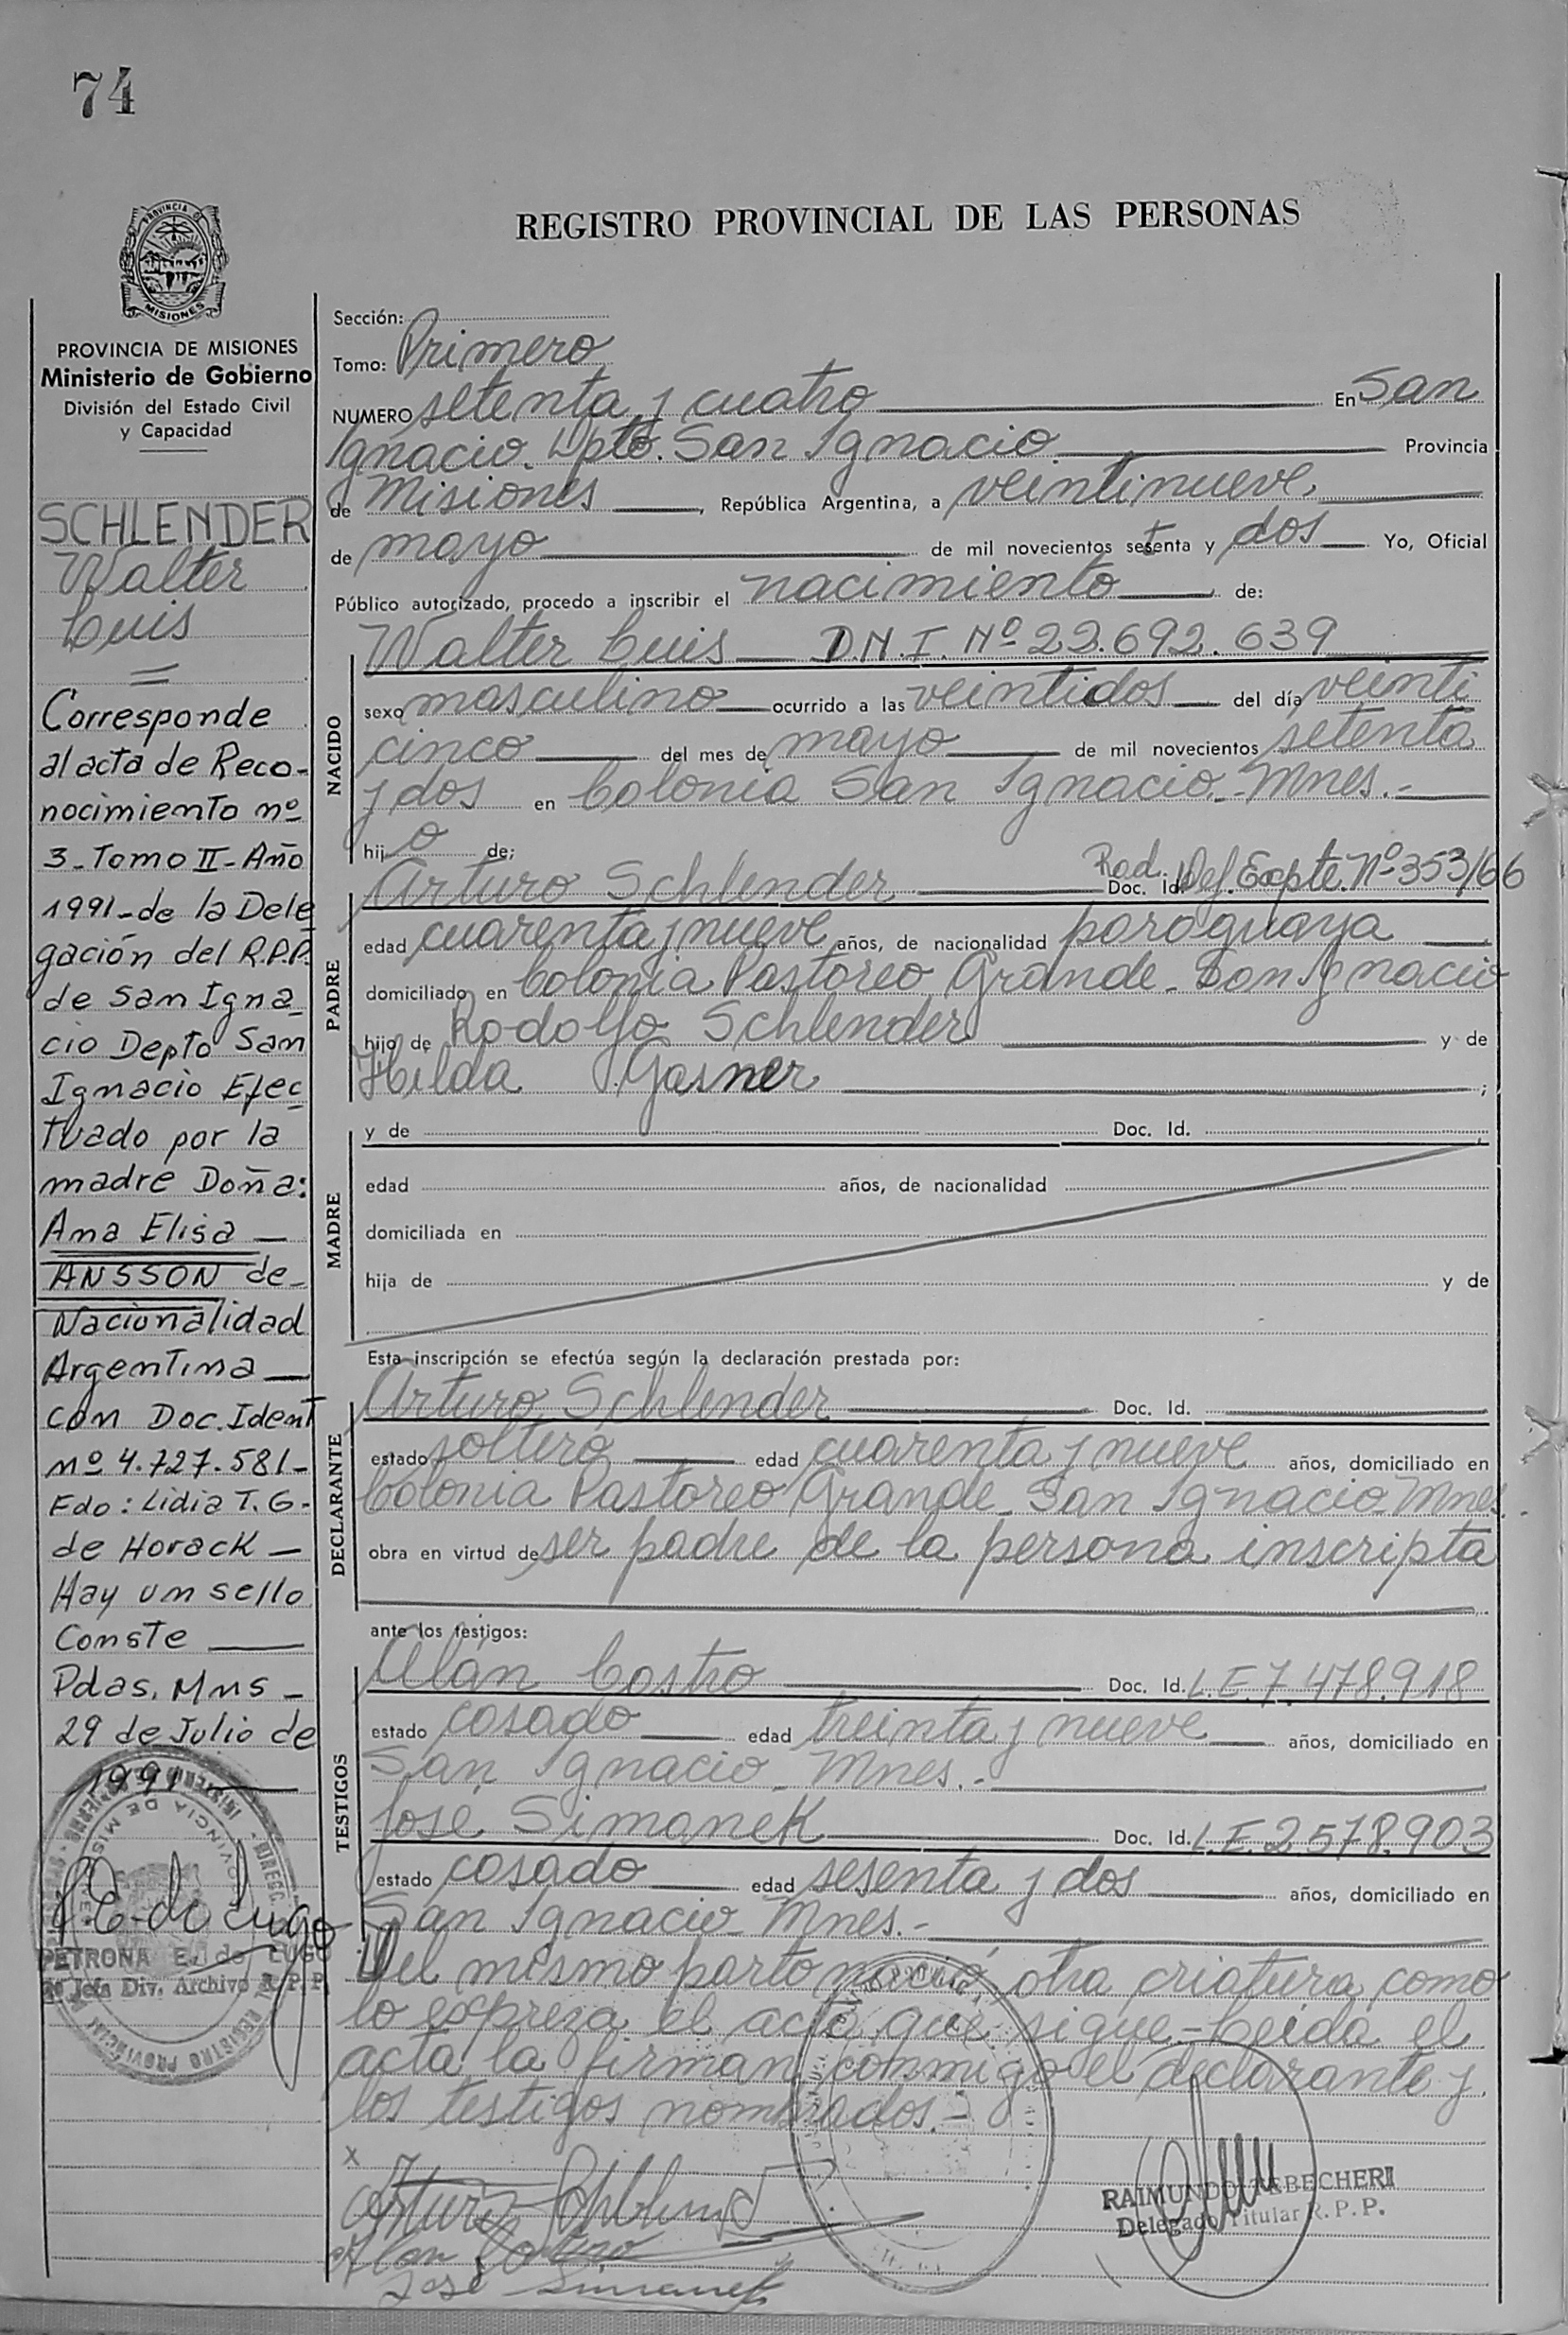 74
REGISTRO PROVINCIAL DE LAS PERSONAS
PROVINCIA DE
MISIONES
PROVINCIA DE MISIONES
Ministerio de Gobierno
División del Estado Civil
y Capacidad
SCHLENDER
Walter
Luis
Corresponde
al acta de Reco-
nocimiento nº
3-Tomo II-Año
1991-de la Dele
gación del R.P.P.
de San Igna
cio Depto San
Ignacio Efec
tuado por la
madre Doña:
Ana Elisa —
ANSSON de—
Nacionalidad
Argentina —
con Doc. Ident
nº 4.727.581-
Fdo: Lidia T. G.
de Horack —
Hay un sello
Conste —
Pdas. Mns —
29 de Julio de
1991 —
P.E. de Lugo
PETRONA E. de LUGO
Jefa Div. Archivo R.P.P.
Sección:
Tomo: Primero
NUMERO setenta y cuatro — En San
Ignacio. Dpto. San Ignacio — Provincia
de Misiones —, República Argentina, a veintinueve —
de mayo — de mil novecientos setenta y dos — Yo, Oficial
Público autorizado, procedo a inscribir el nacimiento — de:
Walter Luis — D.N.I. Nº 22.692.639
NACIDO
sexo masculino — ocurrido a las veintidos — del día veinti
cinco — del mes de mayo — de mil novecientos setenta
y dos en Colonia San Ignacio - Mnes.- —
hijo de;
Rad. Def. Expte. Nº 353/66
Arturo Schlender — Doc. Id.
PADRE
edad cuarenta y nueve años, de nacionalidad paraguaya —
domiciliado en Colonia Pastoreo Grande - San Ignacio
hijo de Rodolfo Schlender — y de
Hilda Gasner — ;
MADRE
y de Doc. Id.
edad años, de nacionalidad
domiciliada en
hija de y de
Esta inscripción se efectúa según la declaración prestada por:
Arturo Schlender — Doc. Id. —
DECLARANTE
estado soltero — edad cuarenta y nueve años, domiciliado en
Colonia Pastoreo Grande - San Ignacio - Mnes.
obra en virtud de ser padre de la persona inscripta
ante los testigos:
TESTIGOS
Alán Castro — Doc. Id. L.E.7.478.918
estado casado — edad treinta y nueve — años, domiciliado en
San Ignacio - Mnes.- —
José Simanek — Doc. Id. L.E.2578.903
estado casado — edad sesenta y dos — años, domiciliado en
San Ignacio - Mnes.- —
Del mismo parto nació otra criatura como
lo expreza el acta que sigue - Leida el
acta la firman conmigo el declarante y
los testigos nombrados.-
x
Arturo Schlender
Alan Castro
José Simanek
RAIMUNDO TEBECHERI
Delegado Titular R. P. P.